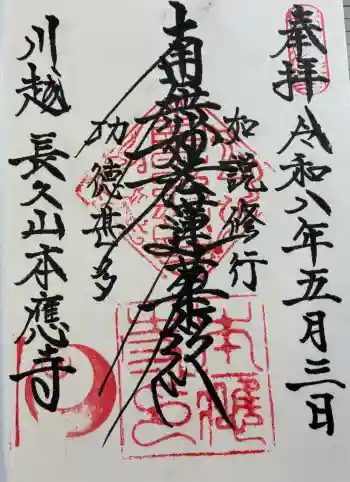 奉拝
令和八年五月三日
如説修行
南無妙法蓮華経
功徳甚多
川越 長久山本應寺